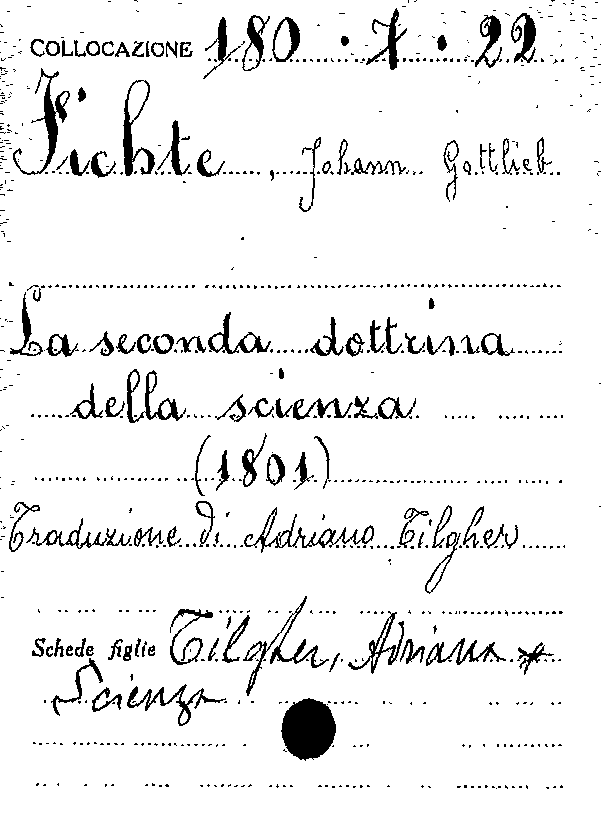 COLLOCAZIONE 180 · 7 · 22
Fichte, Johann Gottlieb
La seconda dottrina
della scienza
(1801)
Traduzione di Adriano Tilgher
Schede figlie Tilgher, Adriano *
Scienza